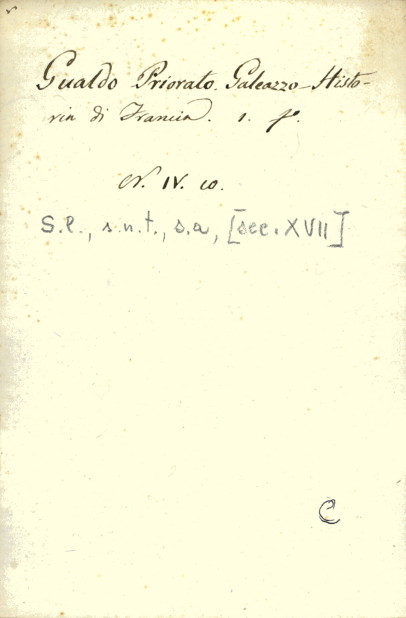 Gualdo Priorato. Galeazzo - Histo-
ria di Francia. 1. f.º
N. IV. 10.
S.l., s.n.t., s.a, [sec. XVII]
C